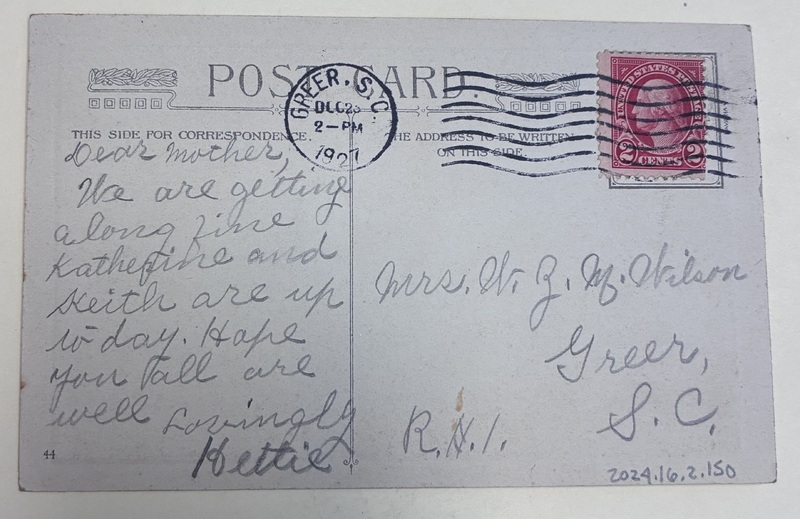 POST CARD
GREER, S.C.
DEC 23
2-PM
1927
UNITED STATES POSTAGE
2 CENTS 2
THIS SIDE FOR CORRESPONDENCE.
THE ADDRESS TO BE WRITTEN
ON THIS SIDE.
Dear Mother,
We are getting
along fine
Katherine and
Keith are up
to day. Hope
you all are
well Lovingly
Hettie
44
Mrs. W. Z. M. Wilson
Greer,
S. C.
R. H. 1.
2024.16.2.150